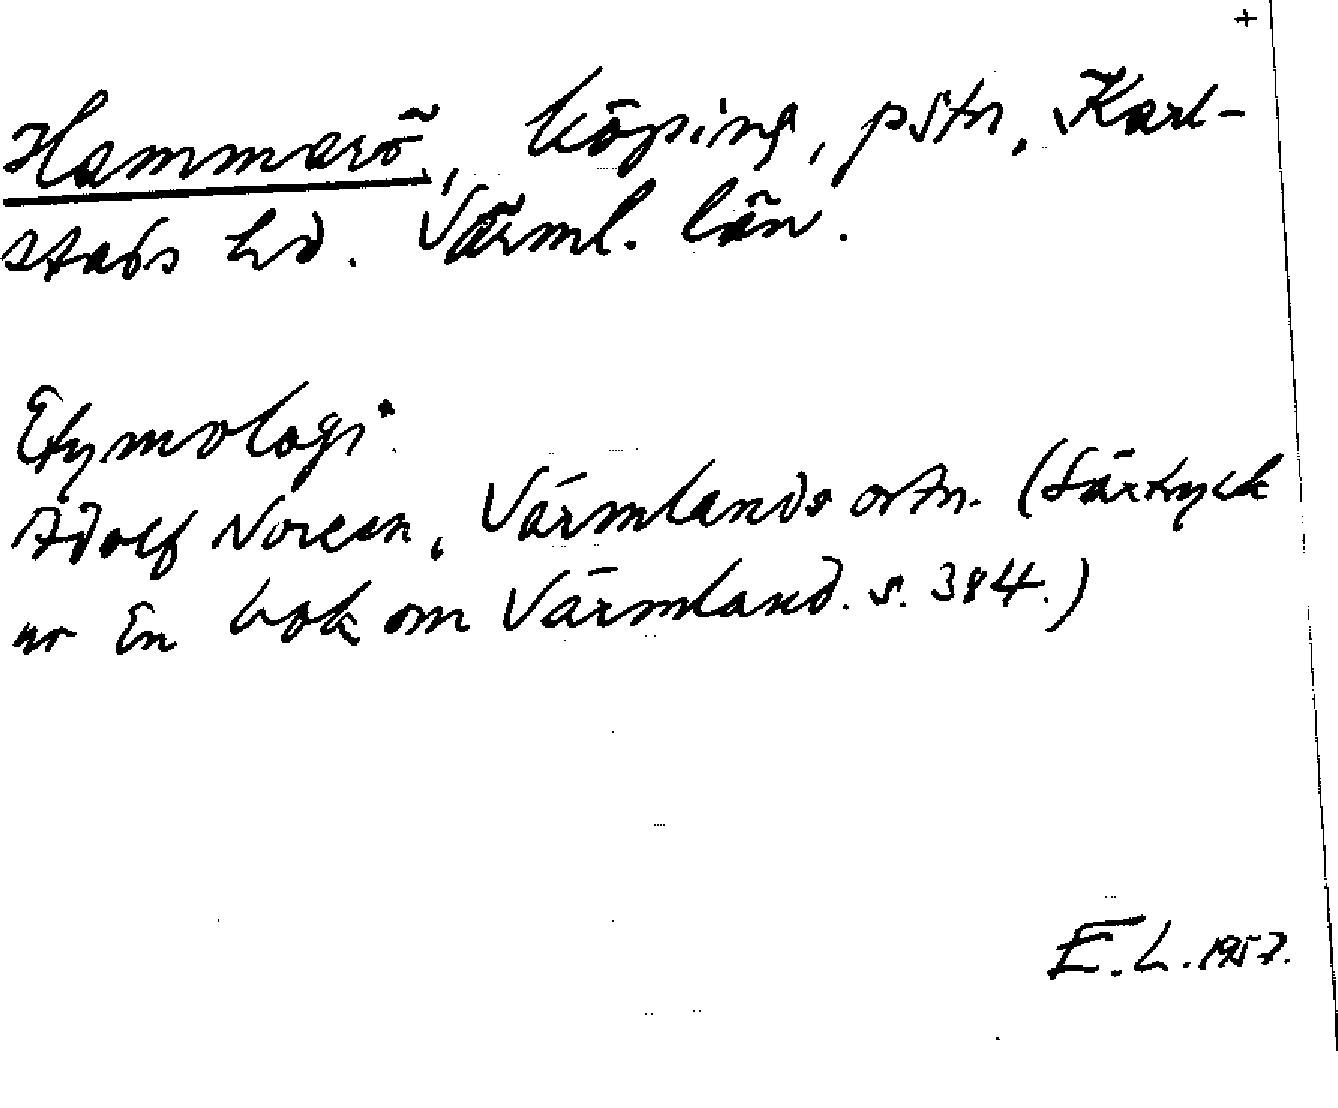 +
Hammarö, köping, pstn, Karl-
stads hd. Värml. län.
Etymologi.
Adolf Noreen, Värmlands ortn. (Särtryck
ur En bok om Värmland. s. 384.)
E. L. 1957.